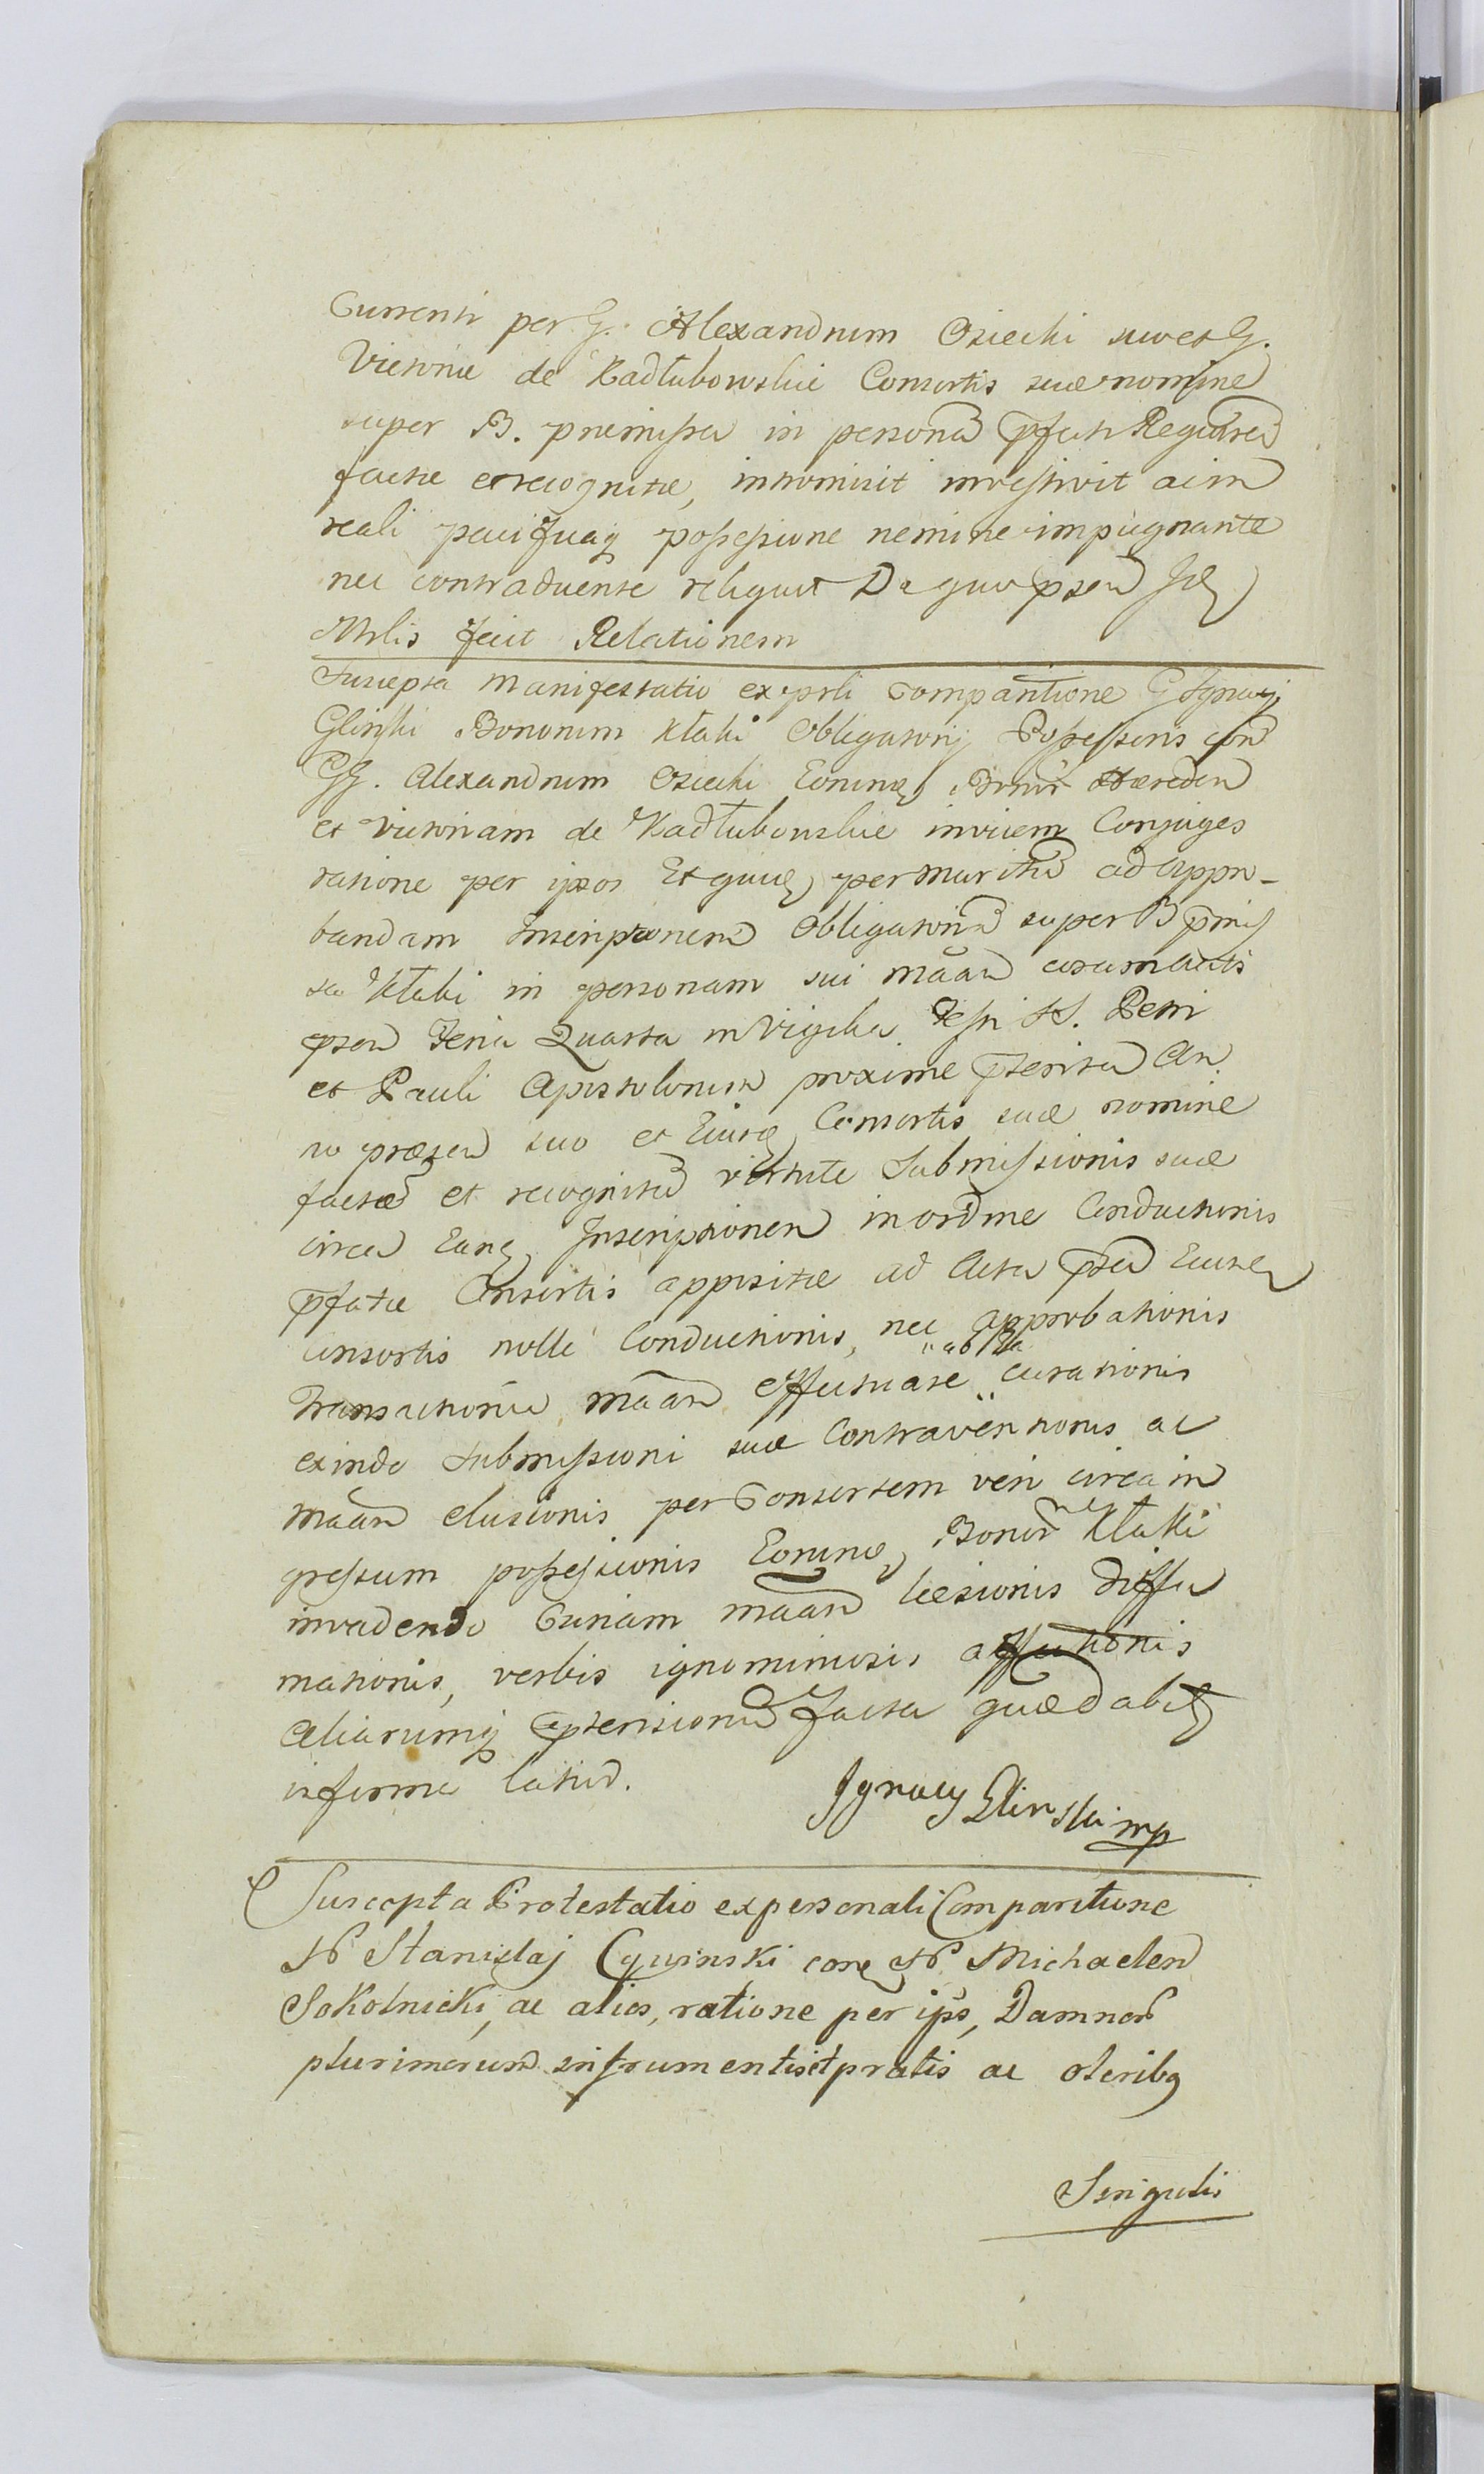 Currenti per G. Alexandrum Osiecki suo et G.
Victoriæ de Kadłubowskie Consortis suæ nomine
super B. præmissa in personam pfati Requiren
factæ et recognitæ, intromisit investivit acin
reali pacificaq possessione nemine impugnante
nec contradicente reliquit De quo psen Jdē
Mnlis fecit Relationem
Suscepta Manifestatio ex prli Comparitione G Ignacij
Gliński Bonorum Kłaki Obligatorij Possessoris con
GG. Alexandrum Osiecki Eorunq Bonor Hæredem
et Victoriam de Kadłubowskie invicem Conjuges
ratione per ipsos Et quidē per Maritum ad appro-
bandam Inscriptionem Obligatoriam super B pmis
sa Kłaki in personam sui Maan coram Actis
psen Feria Quarta in Vigilia Festi SS. Petri
et Pauli Apostolorum proxime pterita An
no præsen suo et Eiusdē Consortis suæ nomine
factæ et recognitæ virtute Submissionis suæ
circa Eandē Inscriptionem in ordine Conductionis
pfatæ Consortis appositæ ad Acta psen Eiusdē
Consortis nolle Conductionis, nec approbationis
„ab Ea
Transactionis maan effectuare „ curationis
exinde Submissioni suæ Contraventionis ac
maan elusionis per Consortem vero circa in
gressum possessionis Eorunq Bonor Kłaki
invadendo Curiam maan læsionis diffa
mationis, verbis ignominiosis affectionis
Aliarumq ptensionum facta quæ dabitr
in forma latius.
Ignacy Glinski mp
Suscepta Protestatio ex personali Comparitione
N Stanislaj Cywinski con N Michaelem
Sokolnicki, ac alios, ratione per ips, Damnor
plurimorum in frumentis et pratis ac oleribq
Singulis